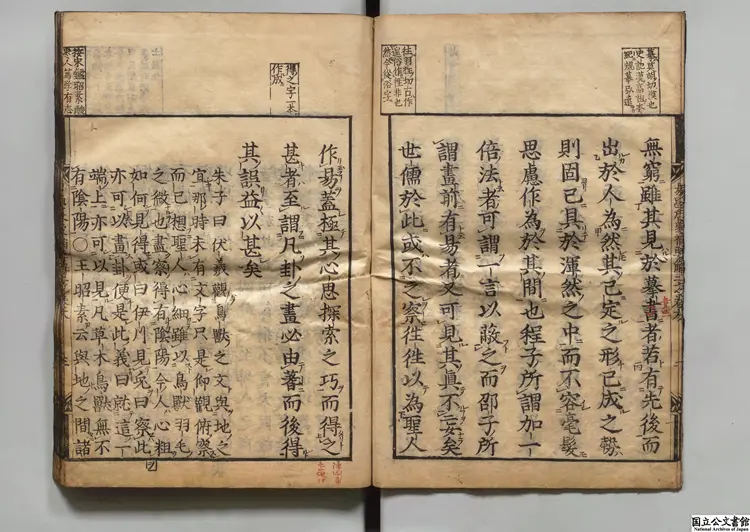 摹莫胡切規也
史記漢高祖本
紀規摹弘遠
無窮雖其見於摹畫者若有先後而
出於人為然其已定之形已成之勢
則固已具於渾然之中而不容毫髮
思慮作為於其間也程子所謂加一
倍法者可謂一言以蔽之而邵子所
謂畫前有易者又可見其真不妄矣
世儒於此或不之察徃徃以為聖人
得之字一本
作成
作易蓋極其心思探索之巧而得之
甚者至謂凡卦之畫必由蓍而後得
其誤益以甚矣
朱子曰伏羲觀鳥獸之文與地之
宜那時未有文字只是仰觀俯察
而已想聖人心細雖以鳥獸羽毛
之微也盡察得有陰陽今人心粗
如何見得或曰伊川見兎曰察此
亦可以畫卦便是此義曰就這一
端上亦可以見凡草木鳥獸無不
有陰陽○王昭素云與地之間諸
按宋鑑昭素酸
棗人篤學有志
国立公文書館
National Archives of Japan